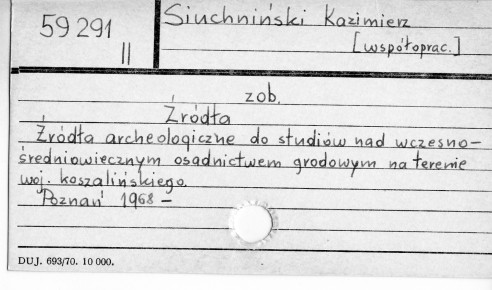 59291
II
Siuchniński Kazimierz
[współoprac.]
zob.
Źródła
Źródła archeologiczne do studiów nad wczesno-
średniowiecznym osadnictwem grodowym na terenie
woj. koszalińskiego.
Poznań 1968 -
DUJ. 693/70. 10 000.